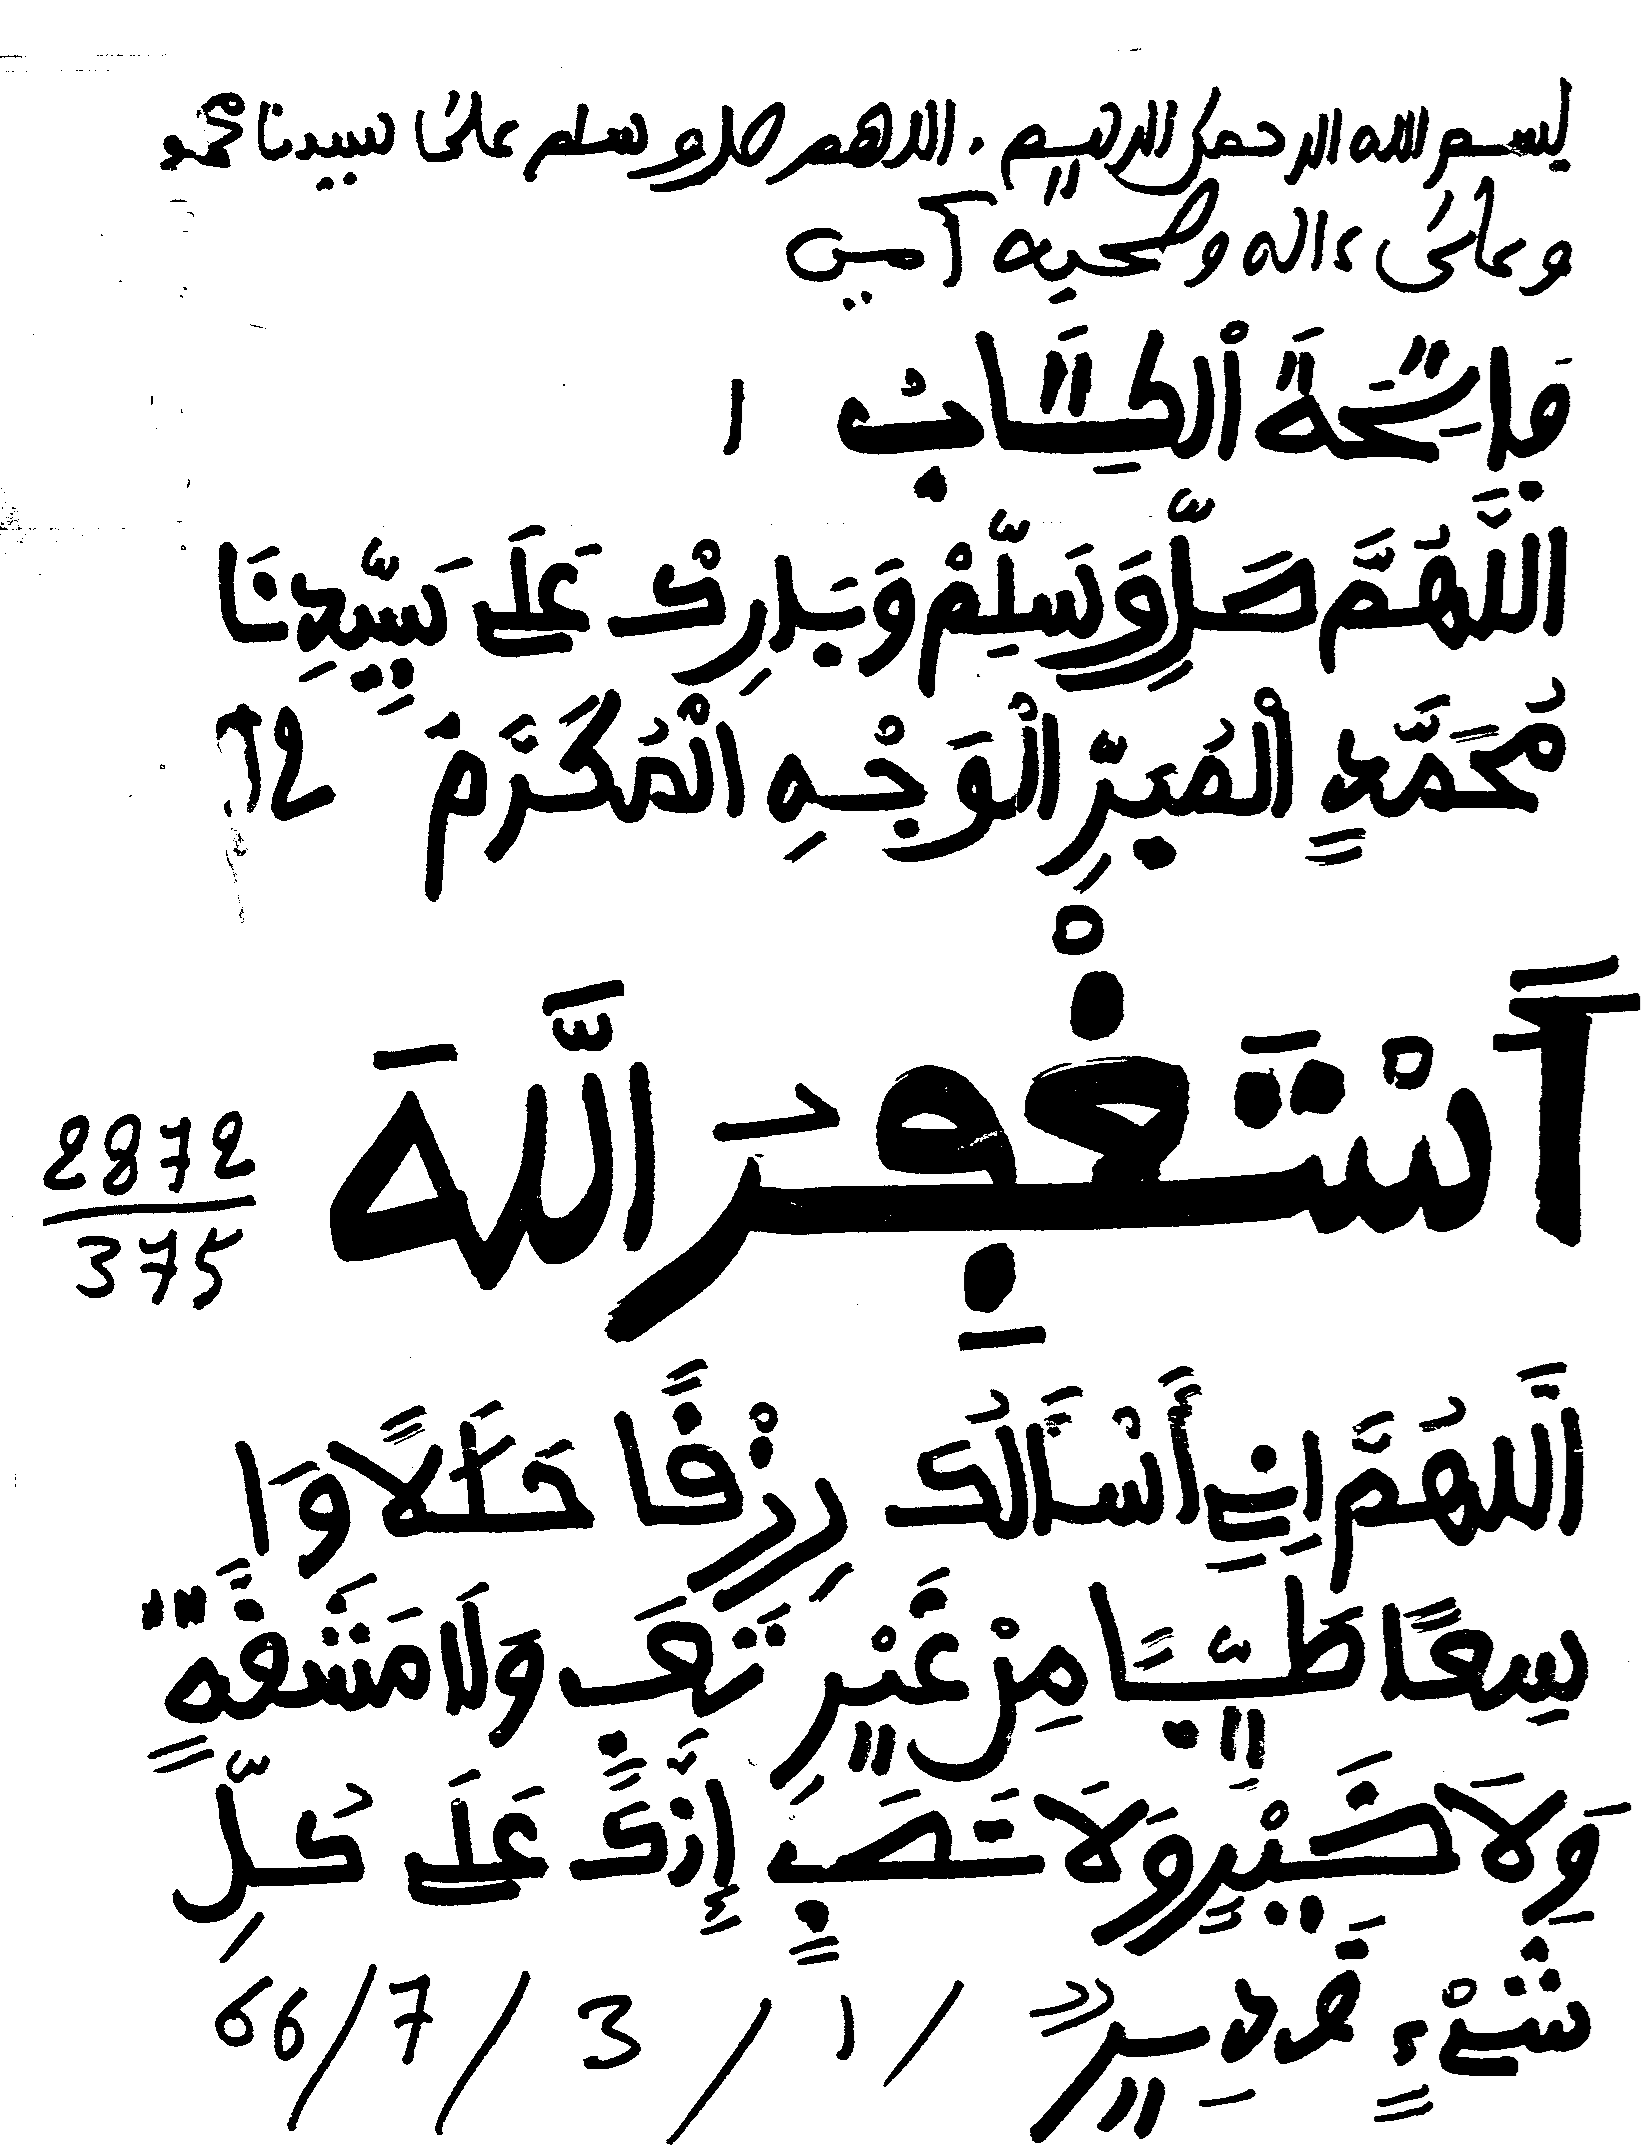 بسم الله الرحمن الرحيم . اللهم صل وسلم على سيدنا محمد
وعلى ءاله وصحبه آمين
فَاتِحَةُ الْكِتَابِ ١
اللَّهُمَّ صَلِّ وَسَلِّمْ وَبَارِكْ عَلَى سَيِّدِنَا
مُحَمَّدٍ الْمُبَرِّ الْوَجْهِ الْمُكَرَّمِ 12
أَسْتَغْفِرُ اللَّهَ
2872
375
اَللهُمَّ اِنِي أَسْأَلُكَ رِزْقًا حَلَالًا وَا
سِعًا طَيِّبًا مِنْ غَيْرِ تَعَبٍ وَلَا مَشَقَّةٍ
وَلَا ضَيْرٍ وَلَا نَصَبٍ إِنَّكَ عَلَى كُلِّ
شَيْءٍ قَدِيرٌ / 1 / 3 / 7 / 66